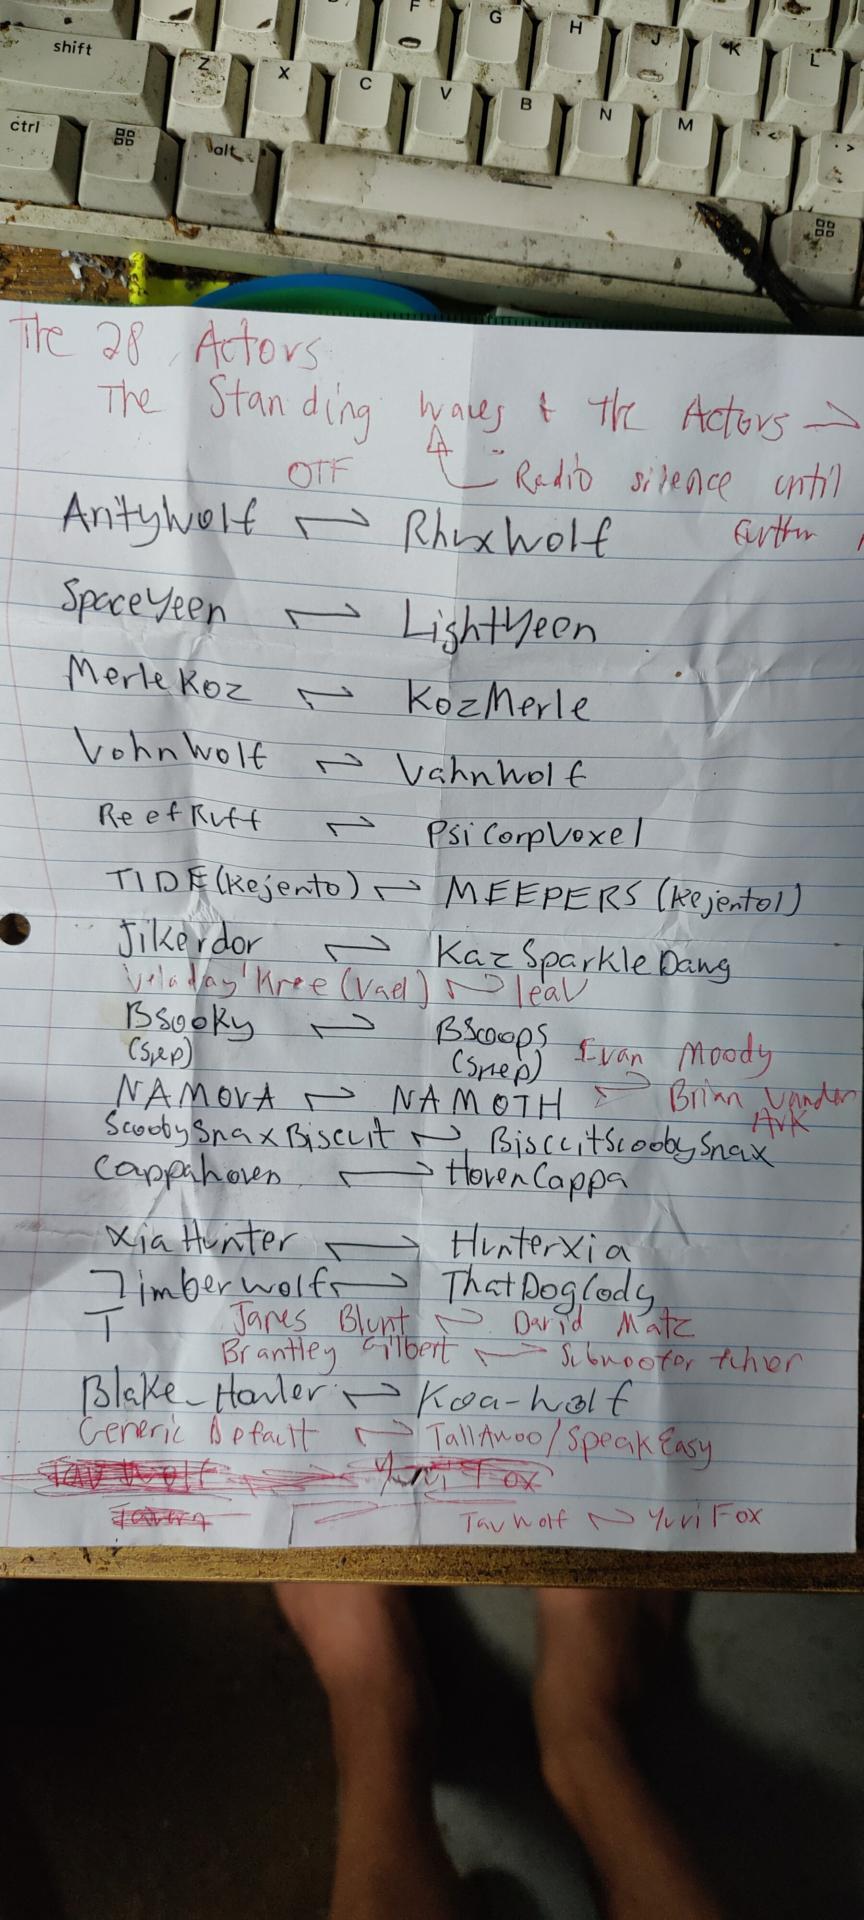 F G H J K L
shift Z X C V B N M < . >
ctrl alt
The 28 Actors
The Standing Waves & The Actors →
OTF Radio silence until
AntyWolf ⇌ RhuxWolf Further
SpaceYeen ⇌ LightYeen
MerleKoz ⇌ KozMerle
VohnWolf ⇌ VahnWolf
ReefRuff ⇌ PsiCorpVoxel
TIDE (Kejento) ⇌ MEEPERS (Kejento1)
Jikerdor ⇌ KazSparkleDang
Veladay'Kree (Vael) ⇌ leaV
BSooky ⇌ BScoops
(Step) (Step) Evan Moody
NAMOVA ⇌ NAMOTH ⇌ Brian Vander
Ark
ScoobySnaxBiscuit ⇌ BiscuitScoobySnax
Cappahoven ⇌ HovenCappa
XiaHunter ⇌ HunterXia
Timberwolf ⇌ ThatDogCody
T James Blunt ⇌ David Matz
Brantley Gilbert ⇌ Subwoofer
Blake_Howler ⇌ Koa-wolf
Generic Default ⇌ TallAwoo/SpeakEasy
Tav Wolf Yuri Fox
TavWolf ⇌ Yuri Fox